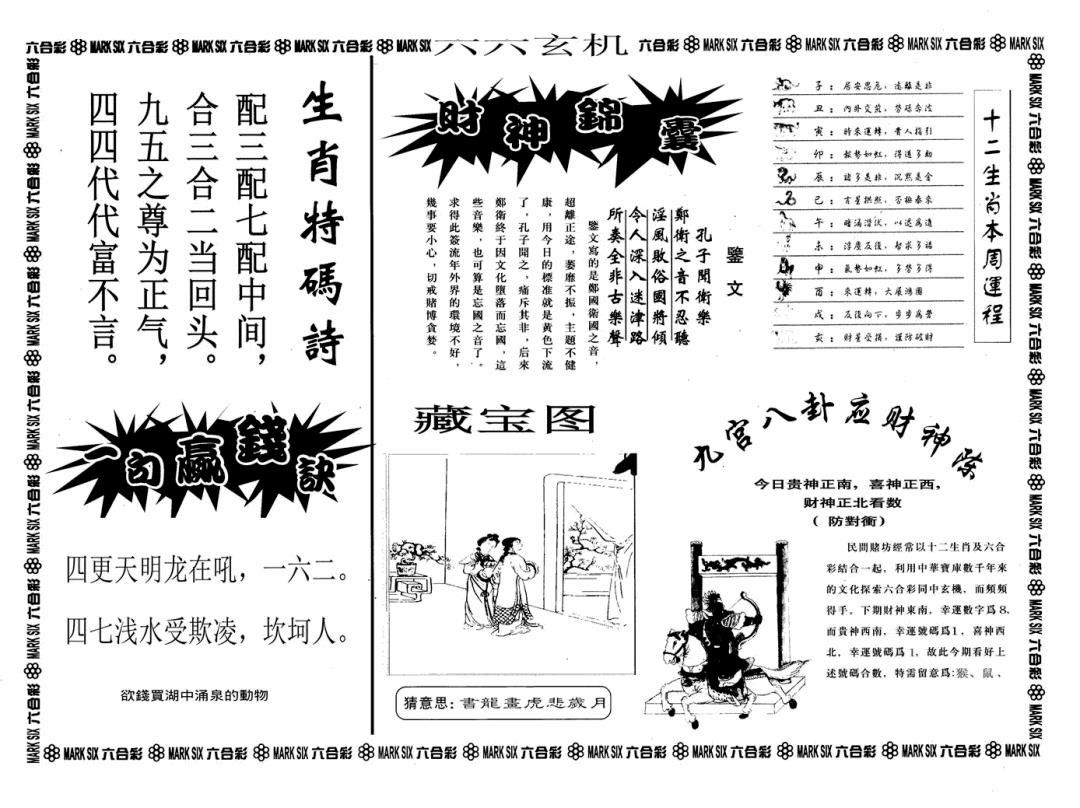 六合彩 MARK SIX 六合彩 MARK SIX 六合彩 MARK SIX 六合彩 MARK SIX 六六玄机 六合彩 MARK SIX 六合彩 MARK SIX 六合彩 MARK SIX 六合彩 MARK SIX
生肖特碼詩
配三配七配中间，
合三合二当回头。
九五之尊为正气，
四四代代富不言。
一句贏錢訣
四更天明龙在吼，一六二。
四七浅水受欺凌，坎坷人。
欲錢買湖中涌泉的動物
財神錦囊
鑒文
孔子聞衛樂
鄭衛之音不忍聽
淫風敗俗國將傾
令人深入迷津路
所奏全非古樂聲
鑒文寫的是鄭國衛國之音，
超離正途，萎靡不振，主題不健
康，用今日的標准就是黄色下流
了，孔子聞之，痛斥其非，后來
鄭衛終于因文化墮落而忘國，這
些音樂，也可算是忘國之音了。
求得此簽流年外界的環境不好，
幾事要小心，切戒賭博貪婪。
十二生肖本周運程
子：居安思危，遠離是非
丑：內外交煎，
寅：時來運轉，貴人指引
卯：趁勢如虹，得道多助
辰：諸多是非，沉默是金
巳：吉星拱照，否極泰來
午：暗涌潛伏，以退為進
未：
申：氣勢如虹，多勞多得
酉：來運轉，大展鴻圖
戌：反復向下，步步為營
亥：財星受損，謹防破財
藏宝图
猜意思：書龍畫虎悲歲月
九宮八卦应财神祭
今日贵神正南，喜神正西，
财神正北看数
（防對衝）
民間賭坊經常以十二生肖及六合
彩結合一起，利用中華寶庫數千年來
的文化探索六合彩同中玄機，而頻頻
得手。下期財神東南，幸運數字爲8,
而貴神西南，幸運號碼爲1，喜神西
北，幸運號碼爲1，故此今期看好上
述號碼合數，特需留意爲:猴、鼠、
六合彩 MARK SIX 六合彩 MARK SIX 六合彩 MARK SIX 六合彩 MARK SIX 六合彩 MARK SIX 六合彩 MARK SIX
六合彩 MARK SIX 六合彩 MARK SIX 六合彩 MARK SIX 六合彩 MARK SIX 六合彩 MARK SIX 六合彩 MARK SIX
MARK SIX 六合彩 MARK SIX 六合彩 MARK SIX 六合彩 MARK SIX 六合彩 MARK SIX 六合彩 MARK SIX 六合彩 MARK SIX 六合彩 MARK SIX 六合彩 MARK SIX 六合彩 MARK SIX